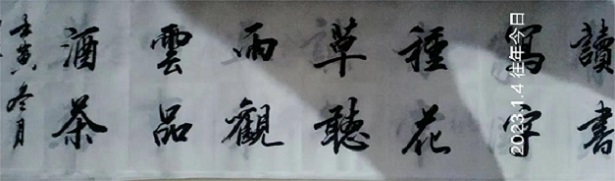 讀書
寫字
種花
草聽
雨觀
雲品
酒茶
壬寅冬月
2023.1.4 往年今日